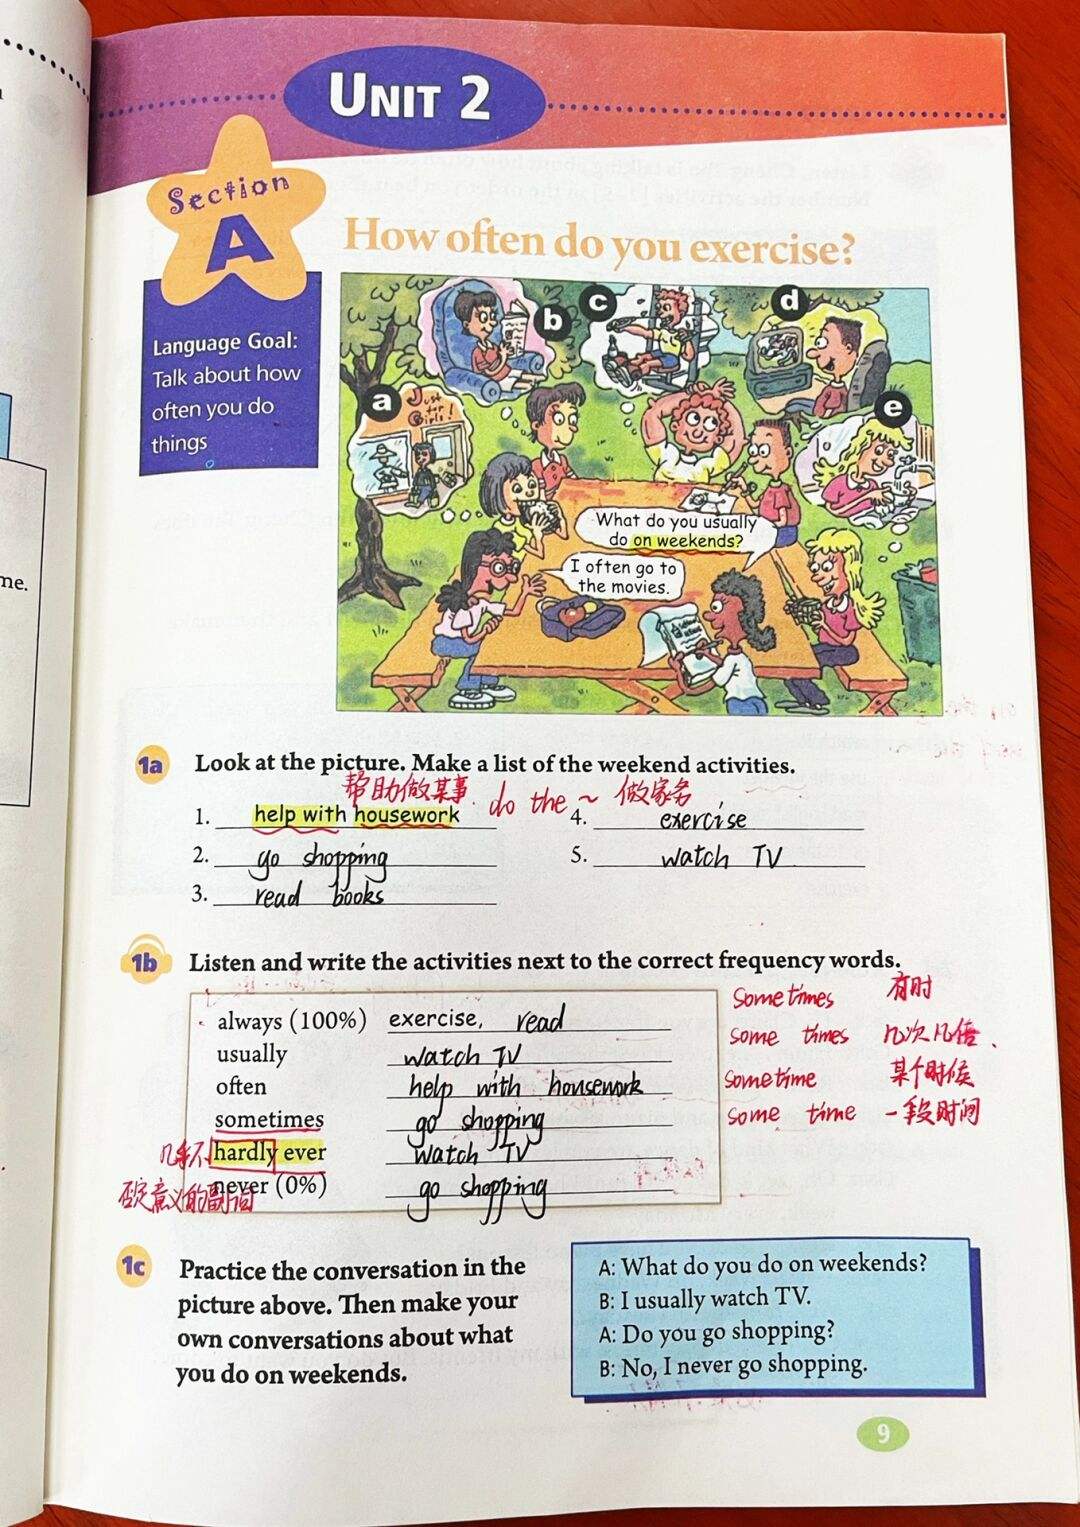 UNIT 2
Section
A
Language Goal:
Talk about how
often you do
things
How often do you exercise?
a
b
c
d
e
Just
for
Girls!
What do you usually
do on weekends?
I often go to
the movies.
me.
1a Look at the picture. Make a list of the weekend activities.
帮助做某事 do the ~ 做家务
1. help with housework
2. go shopping
3. read books
4. exercise
5. watch TV
1b Listen and write the activities next to the correct frequency words.
always (100%) exercise, read
usually watch TV
often help with housework
sometimes go shopping
几乎不 hardly ever watch TV
never (0%) go shopping
否定意义的副词
sometimes 有时
some times 几次几倍、
sometime 某个时候
some time 一段时间
1c Practice the conversation in the
picture above. Then make your
own conversations about what
you do on weekends.
A: What do you do on weekends?
B: I usually watch TV.
A: Do you go shopping?
B: No, I never go shopping.
9